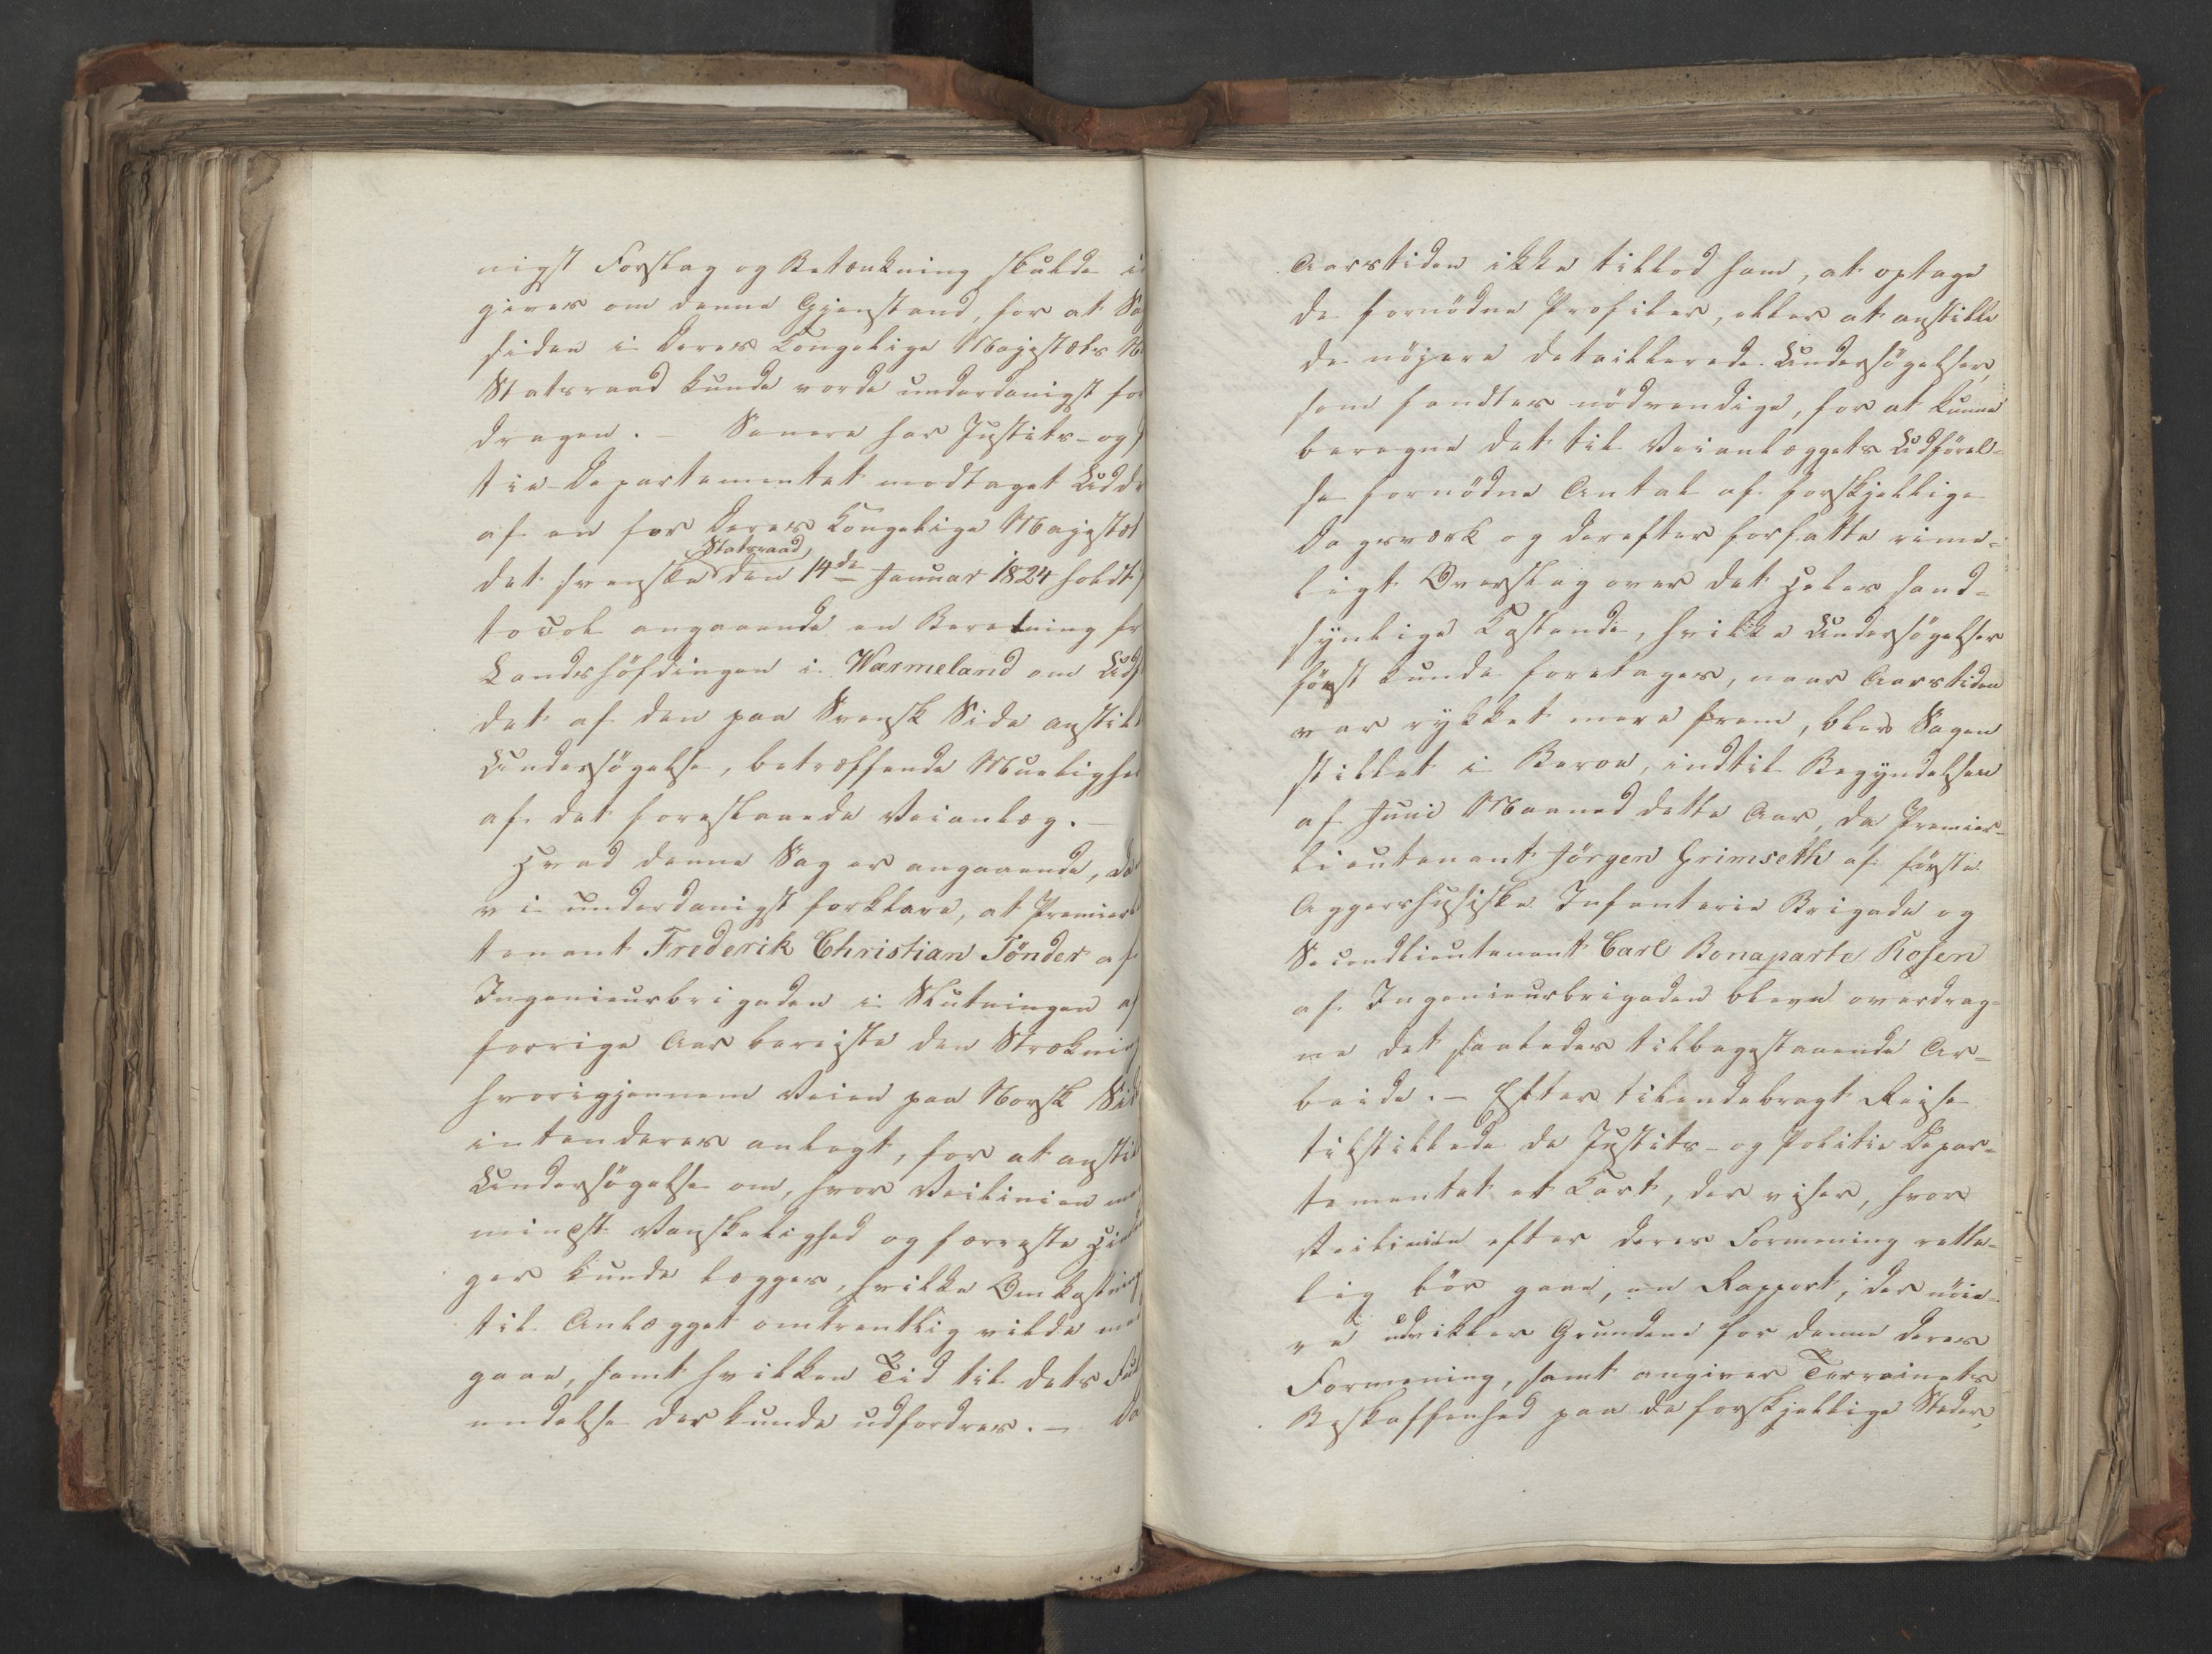 nigst Forslag og Betænkning skulde i
gives om denne Gjenstand, for at Sa
siden i Deres Kongelige Majestæts N
Statsraad kunde vorde underdanigst for
dragen. – Senere har Justits- og
tie-Departementet modtaget Uddr
af en for Deres Kongelige Majestæt
Statsraad,
det svenske den 14de Januar 1824 holdt
tocol angaaende en Beretning fr
Landshöfdingen i Warmeland om Udf
det af den paa Svensk Side anstil
Undersögelse, betræffende Mueligh
af det foreslaaede Veianlæg. –
Hvad denne Sag er angaaende,
vi underdanigst forklare, at Premier
tenant Frederik Christian Tönder af
Ingenieurbrigaden i Slutningen af
forrige Aar bereiste den Strækni
hvorigjennem Veien paa Norsk Sid
intenderes anlagt, for at anstil
Undersögelse om, hvor Veilinien
mindst Vanskelighed og færreste Hin
ger kunde lægges, hvilke Omkostning
til Anlægget omtrentlig vilde
gaae, samt hvilken Tid til dets Ful
endelse der kunde udfordres. – Da
Aarstiden ikke tillod ham, at optage
de fornödne Profiler, eller at anstille
de nöjere detaillerede Undersögelser,
som fandtes nödvendige, for at kunne
beregne det til Veianlæggets Udförel-
se fornödne Antal af forskjellige
Dagsværk og derefter forfatte rime-
ligt Overslag over det Heles sand-
synlige Kostende, hvilke Undersögelser
först kunde foretages, naar Aarstiden
var rykket mere frem, blev Sagen
stillet i Beroe, indtil Begyndelsen
af Juni Maaned dette Aar, da Premier-
lieutenant Jörgen Grimseth af förste
Aggershusiske Infanterie Brigade og
Secondlieutenant Carl Bonaparte Rosen
af Ingenieurbrigaden bleve overdrag-
ne det saaledes tilbagestaaende Ar-
beide. – Efter tilendebragt Reise
tilstillede de Justits- og Politie Depar-
tementet et Kart, der viser, hvor
Veilinien efter deres Formening rette-
lig bör gaae, en Rapport, der nöie-
re udvikler Grundene for denne deres
Formening, samt angiver Terrainets
Beskaffenhed paa de forskjellige Steder,